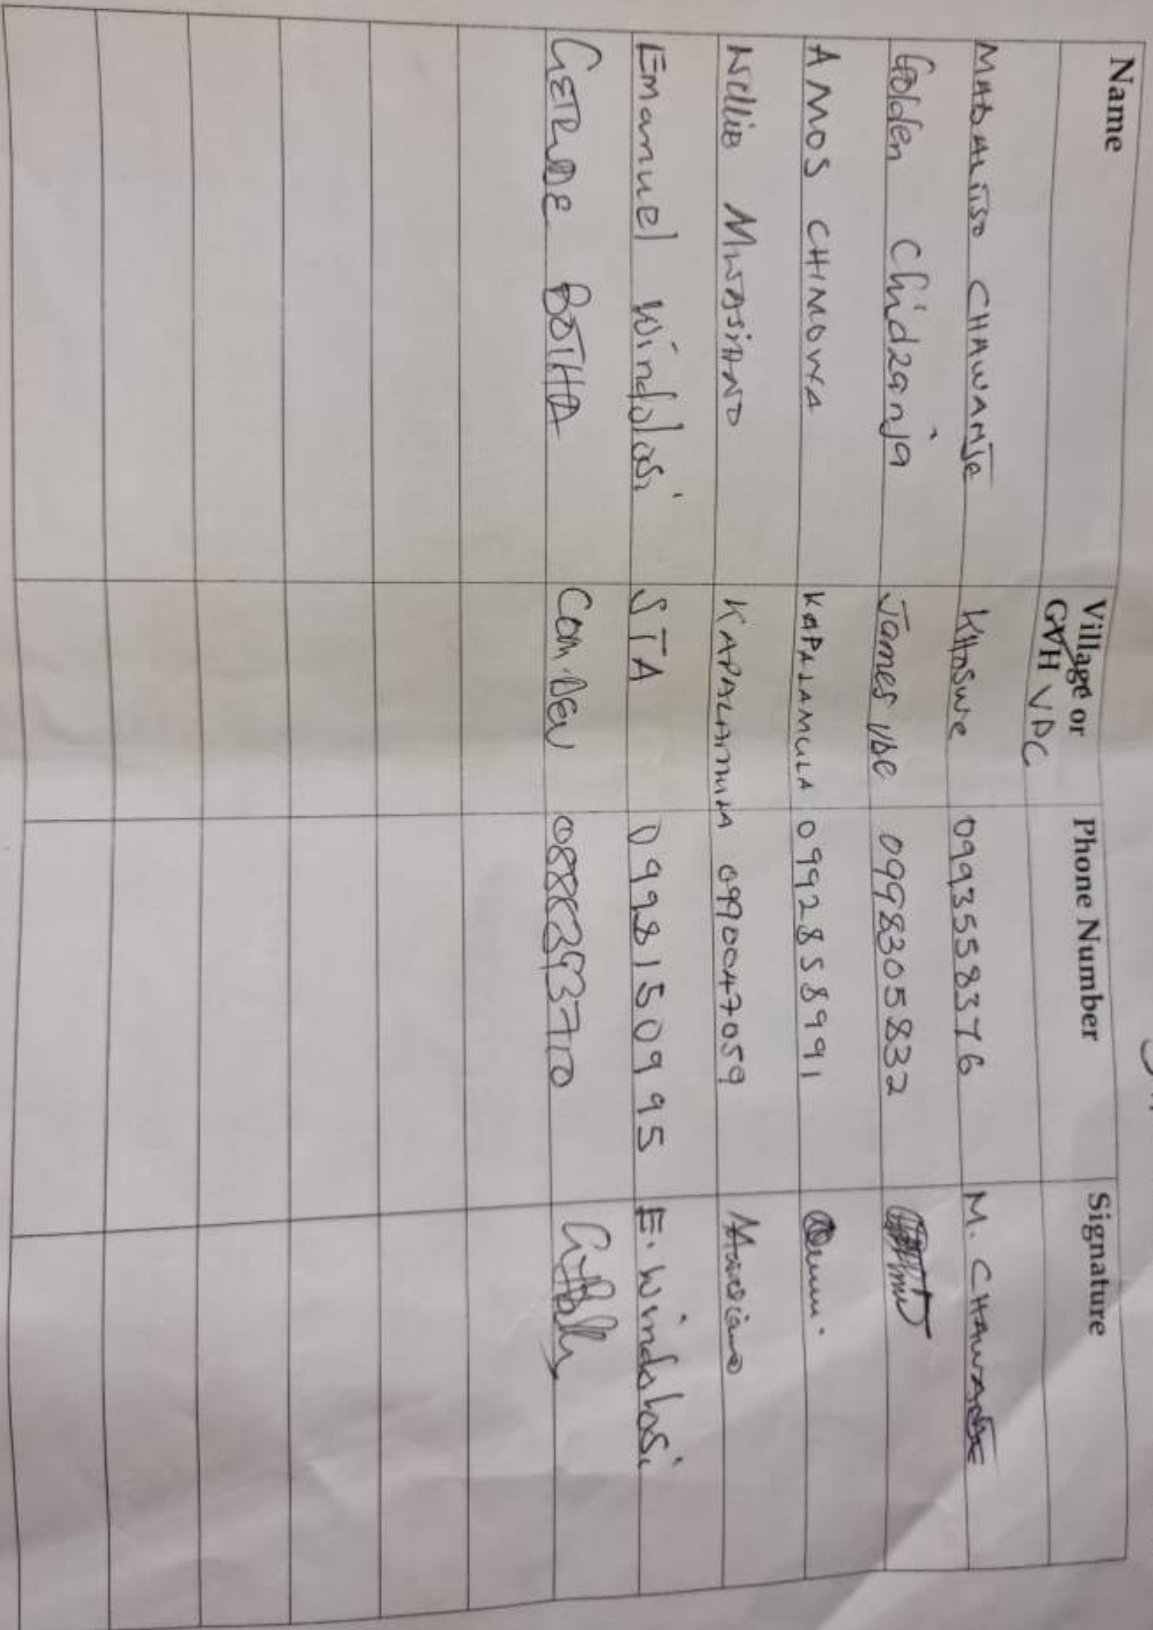 Name Village or GVH VDC Phone Number Signature
MADALITSO CHAWANJE KHOSWE 0993558376 M. CHAWANJE
Golden Chidzanja James vbe 0998305832
AMOS CHIMOWA KAPALAMULA 0992858991
Nellie MWASIANO KAPALAMULA 0990047059
Emanuel Windolosi STA 0998150995 E. Windolosi
GETRUDE BOTHA Com.Dev 0888293710